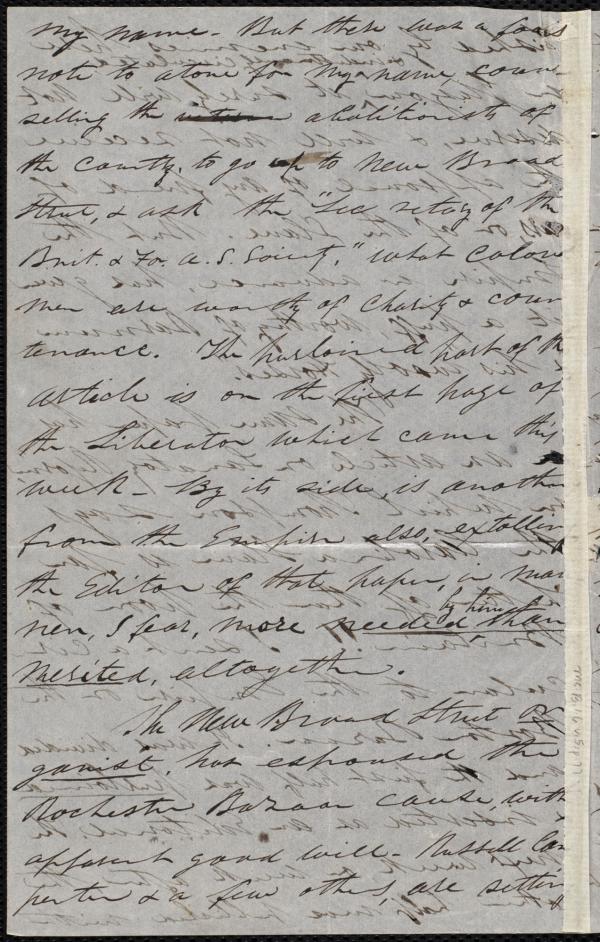 my name - But there was a foot
note to atone for my name, coun-
selling the abolitionists of
the county, to go up to New Broad
Street, & ask the "Secretary of the
Brit. & Fo. A. S. Society," what Colored
men are worthy of charity & coun
tenance. The purloined part of the
article is on the first page of
the Liberator which came this
week - By its side, is another
from the Empire also, extolling
the Editor of that paper, in man
ner, I fear, more needed by himself than
merited, altogether.
The New Broad Street or
ganist, has espoused the
Rochester Bazaar cause, with
apparent good will - Russell Car
penter & a few others, are setting